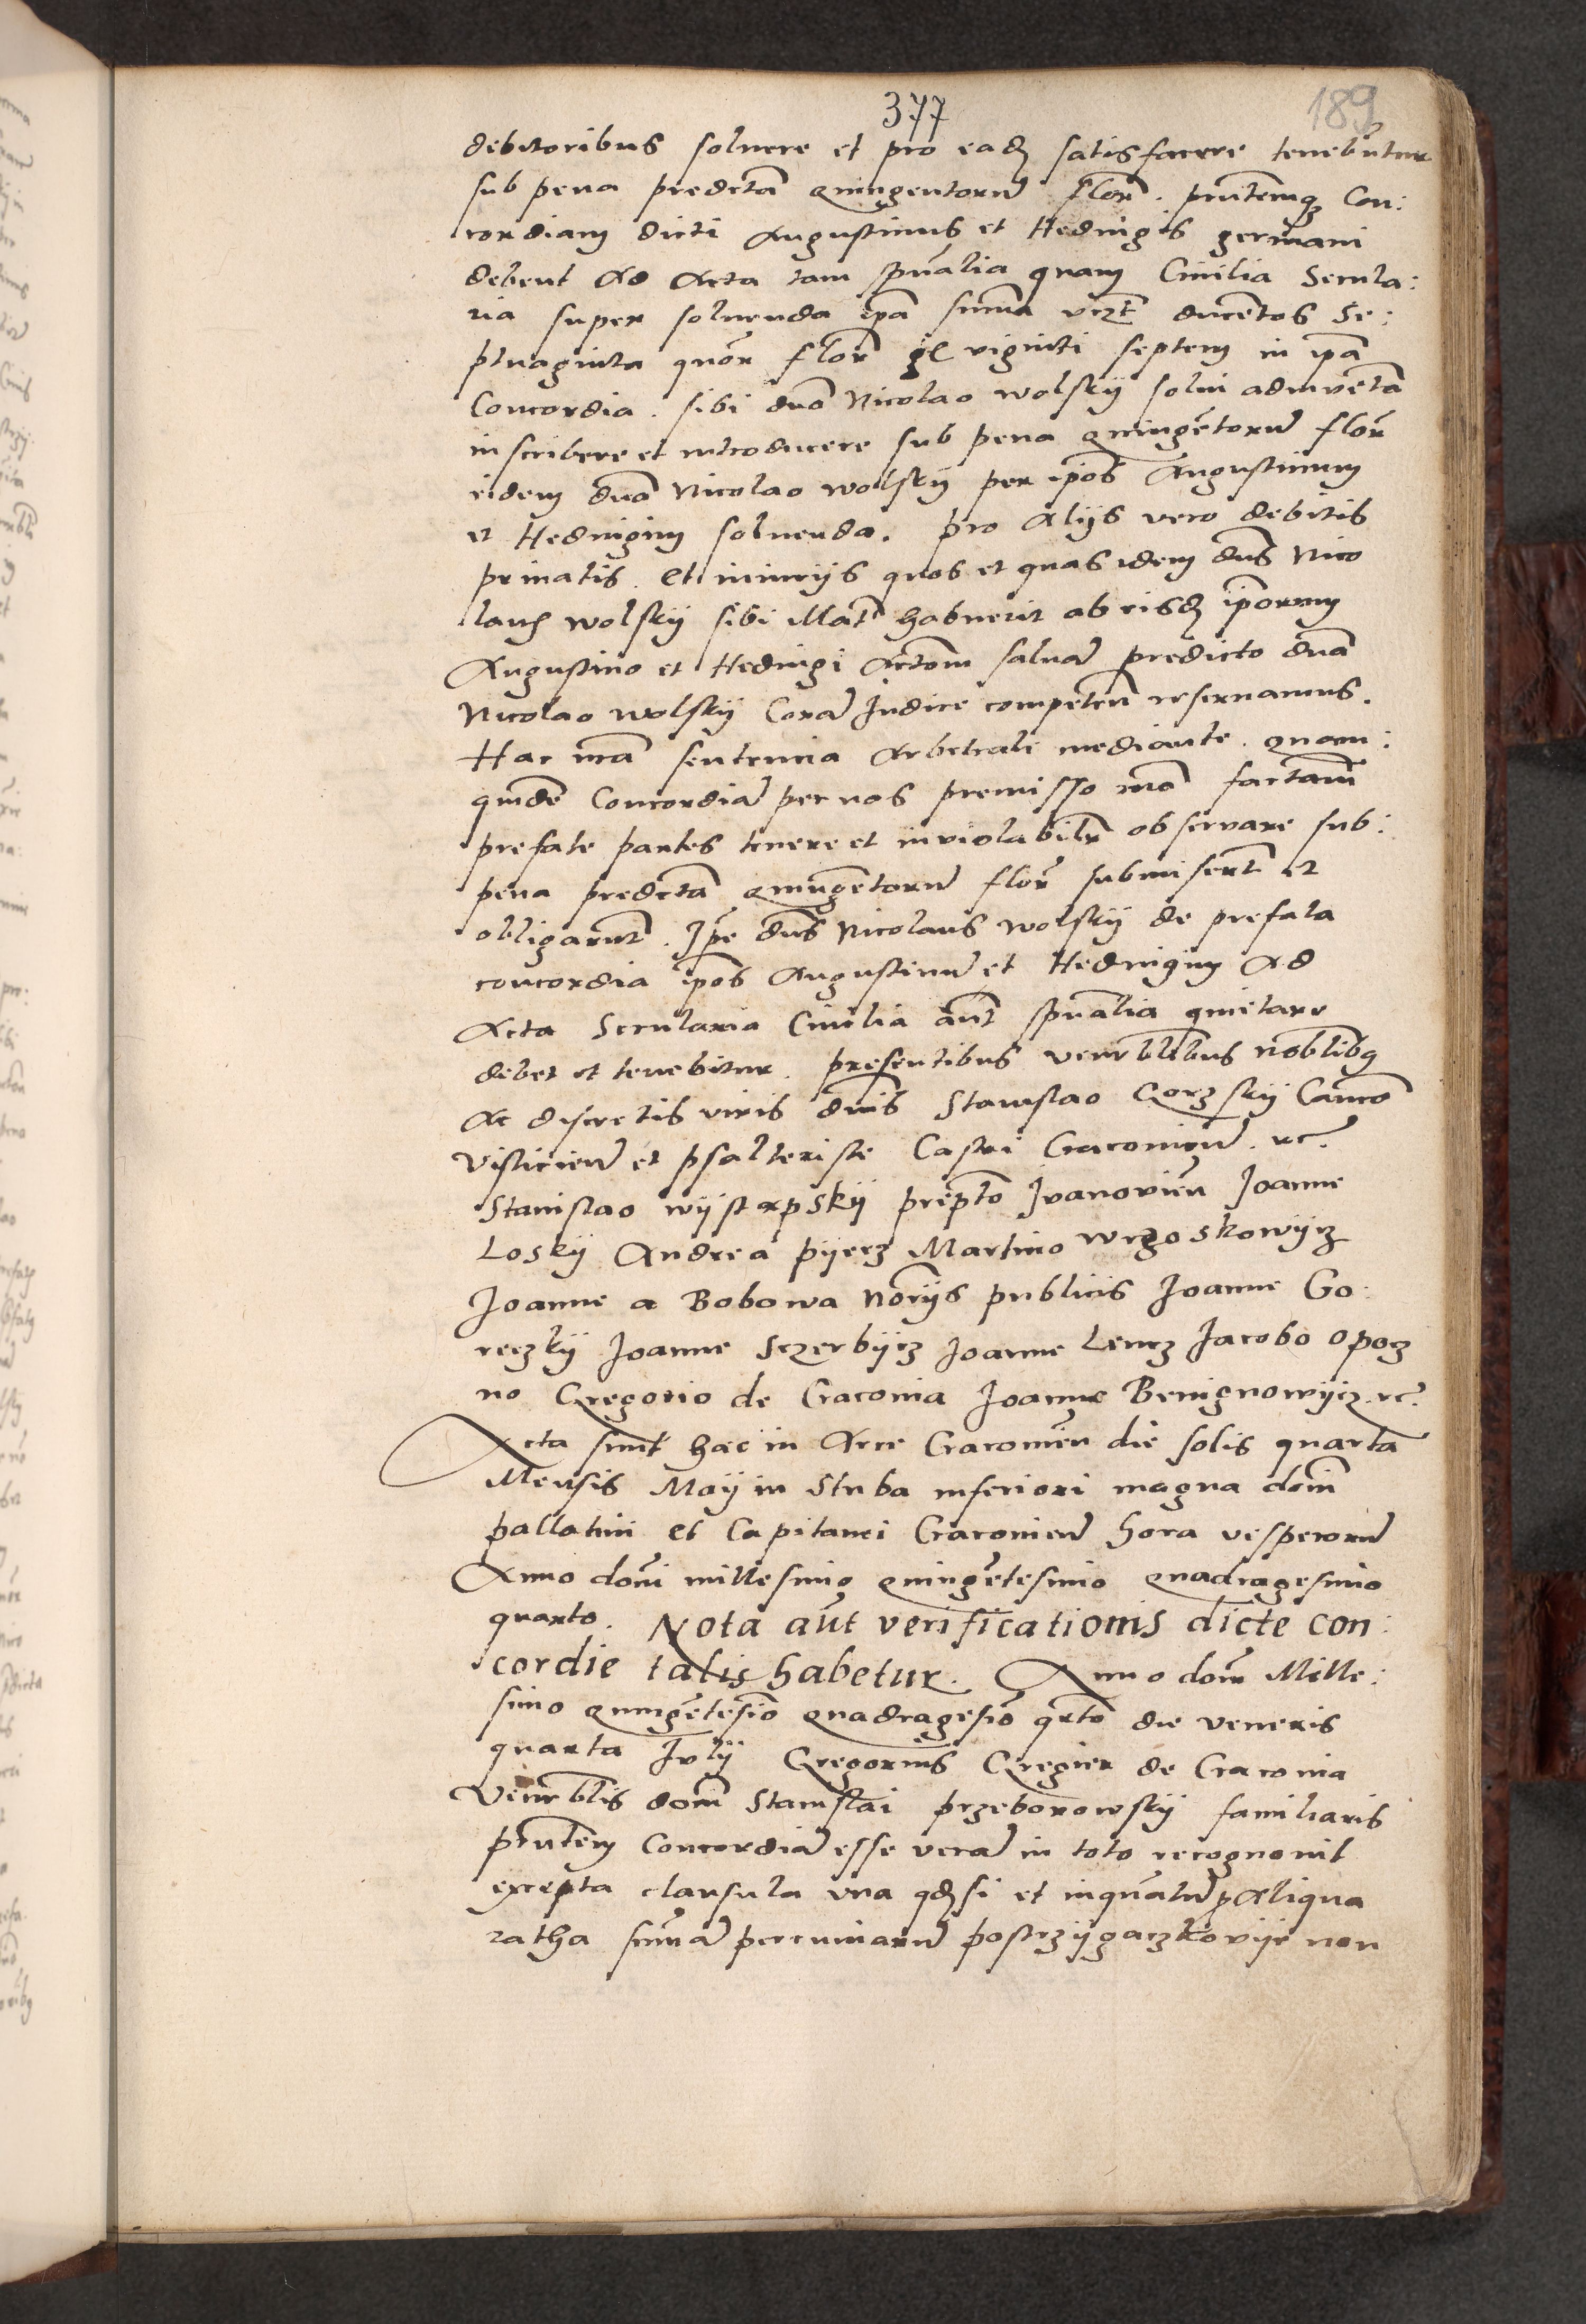 377
189
debitoribus soluere et pro eadȝ satisfacere tenebūtur
sub pena predictā quingentorū florȝ. pn̄temqȝ Con:
cordiam dicti Augustinus et Heduigis germani
debent ad acta tam spūalia quam Ciuilia Secula:
ria super soluenda ipā sūma vczt ducētos Se:
ptuaginta quōr florȝ gl viginti septem in ipā
Concordia. sibi dnō Nicolao wolskij solui adinuētā
inscribere et introducere sub pena quingētorū florȝ
eidem dnō Nicolao wolskij per ipōs Augustinum
et Heduigim soluenda. pro alijs vero debitis
priuatis. et iniurijs quos et quas idem dns̄ Nico
laus wolskij sibi illatȝ habuerit ab eisdȝ ipōrum
Augustino et Heduigi actiōm saluā predicto dnō
Nicolao wolskij Corā Judice competen̄ reseruamus.
Hac nrā sententia arbitrali mediante. quam:
quidē Concordiā per nos premisso mō factam̄
prefate partes tenere et inuiolabilr̄ obseruare sub:
pena predictā quingētorū florȝ submiserūt et
obligarūt. Ipē dns̄ Nicolaus wolskij de prefata
concordia ipōs Augustinū et Heduigim ad
Acta Secularia Ciuilia aut̄ spūalia quietare
debet et tenebitur. presentibus venerblibus noblibqȝ
ac discretis viris dnīs Stanislao Gorzskij Canco
Visliciēn et psalteriste Castri Cracouiēn. rc.
Stanislao wijstxpskij prep̄to Jvanouiēn Joanne
Loskij Andrea pijecz Martino wrzoskowijcz
Joanne a Bobowa nōrijs publicis Joanne Go:
reczkij Joanne Sczerbijcz Joanne Lencz Jacobo opocz
no Gregorio de Cracouia Joanne Benignowijcz. rc.
Acta sunt hāc in Arce Cracouiēn die solis quarta
Mensis Maij in Stuba inferiori magna dom̄
pallatini et Capitanei Cracouiēn hora vesperorū
Anno domī millesimo quingētesimo quadragesimo
quarto. Nota aut̄ verificationis dicte con:
cordie talis habetur. Anno dom̄ Mille:
simo quingētesiō quadragesiō qrto die veneris
quarta Julij Gregorius Gregier de Cracouia
Venerblis domī Stanislai przeborowskij familiaris
pn̄tem Concordiā esse verā in toto recognouit
excepta clausula vna qdȝ si et inquātū p aliqua
ratha sūmā pecuniarū postrzijgaczkovije non